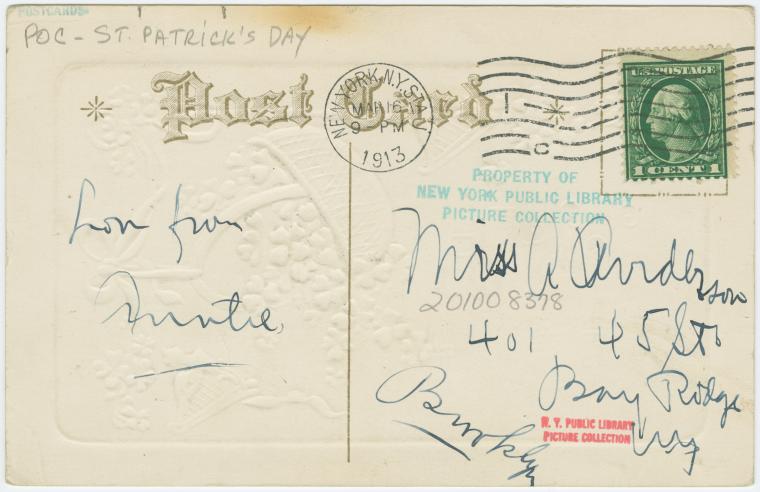 POSTCARDS
POC - ST. PATRICK'S DAY
Post Card
NEW YORK, N.Y. STA.
MAR 16
9 PM
1913
C
U.S. POSTAGE
1 CENT 1
PROPERTY OF
NEW YORK PUBLIC LIBRARY
PICTURE COLLECTION
Love from
Auntie
Miss A Anderson
201008378
401 45 St
Bay Ridge
Brooklyn
N.Y. PUBLIC LIBRARY
PICTURE COLLECTION